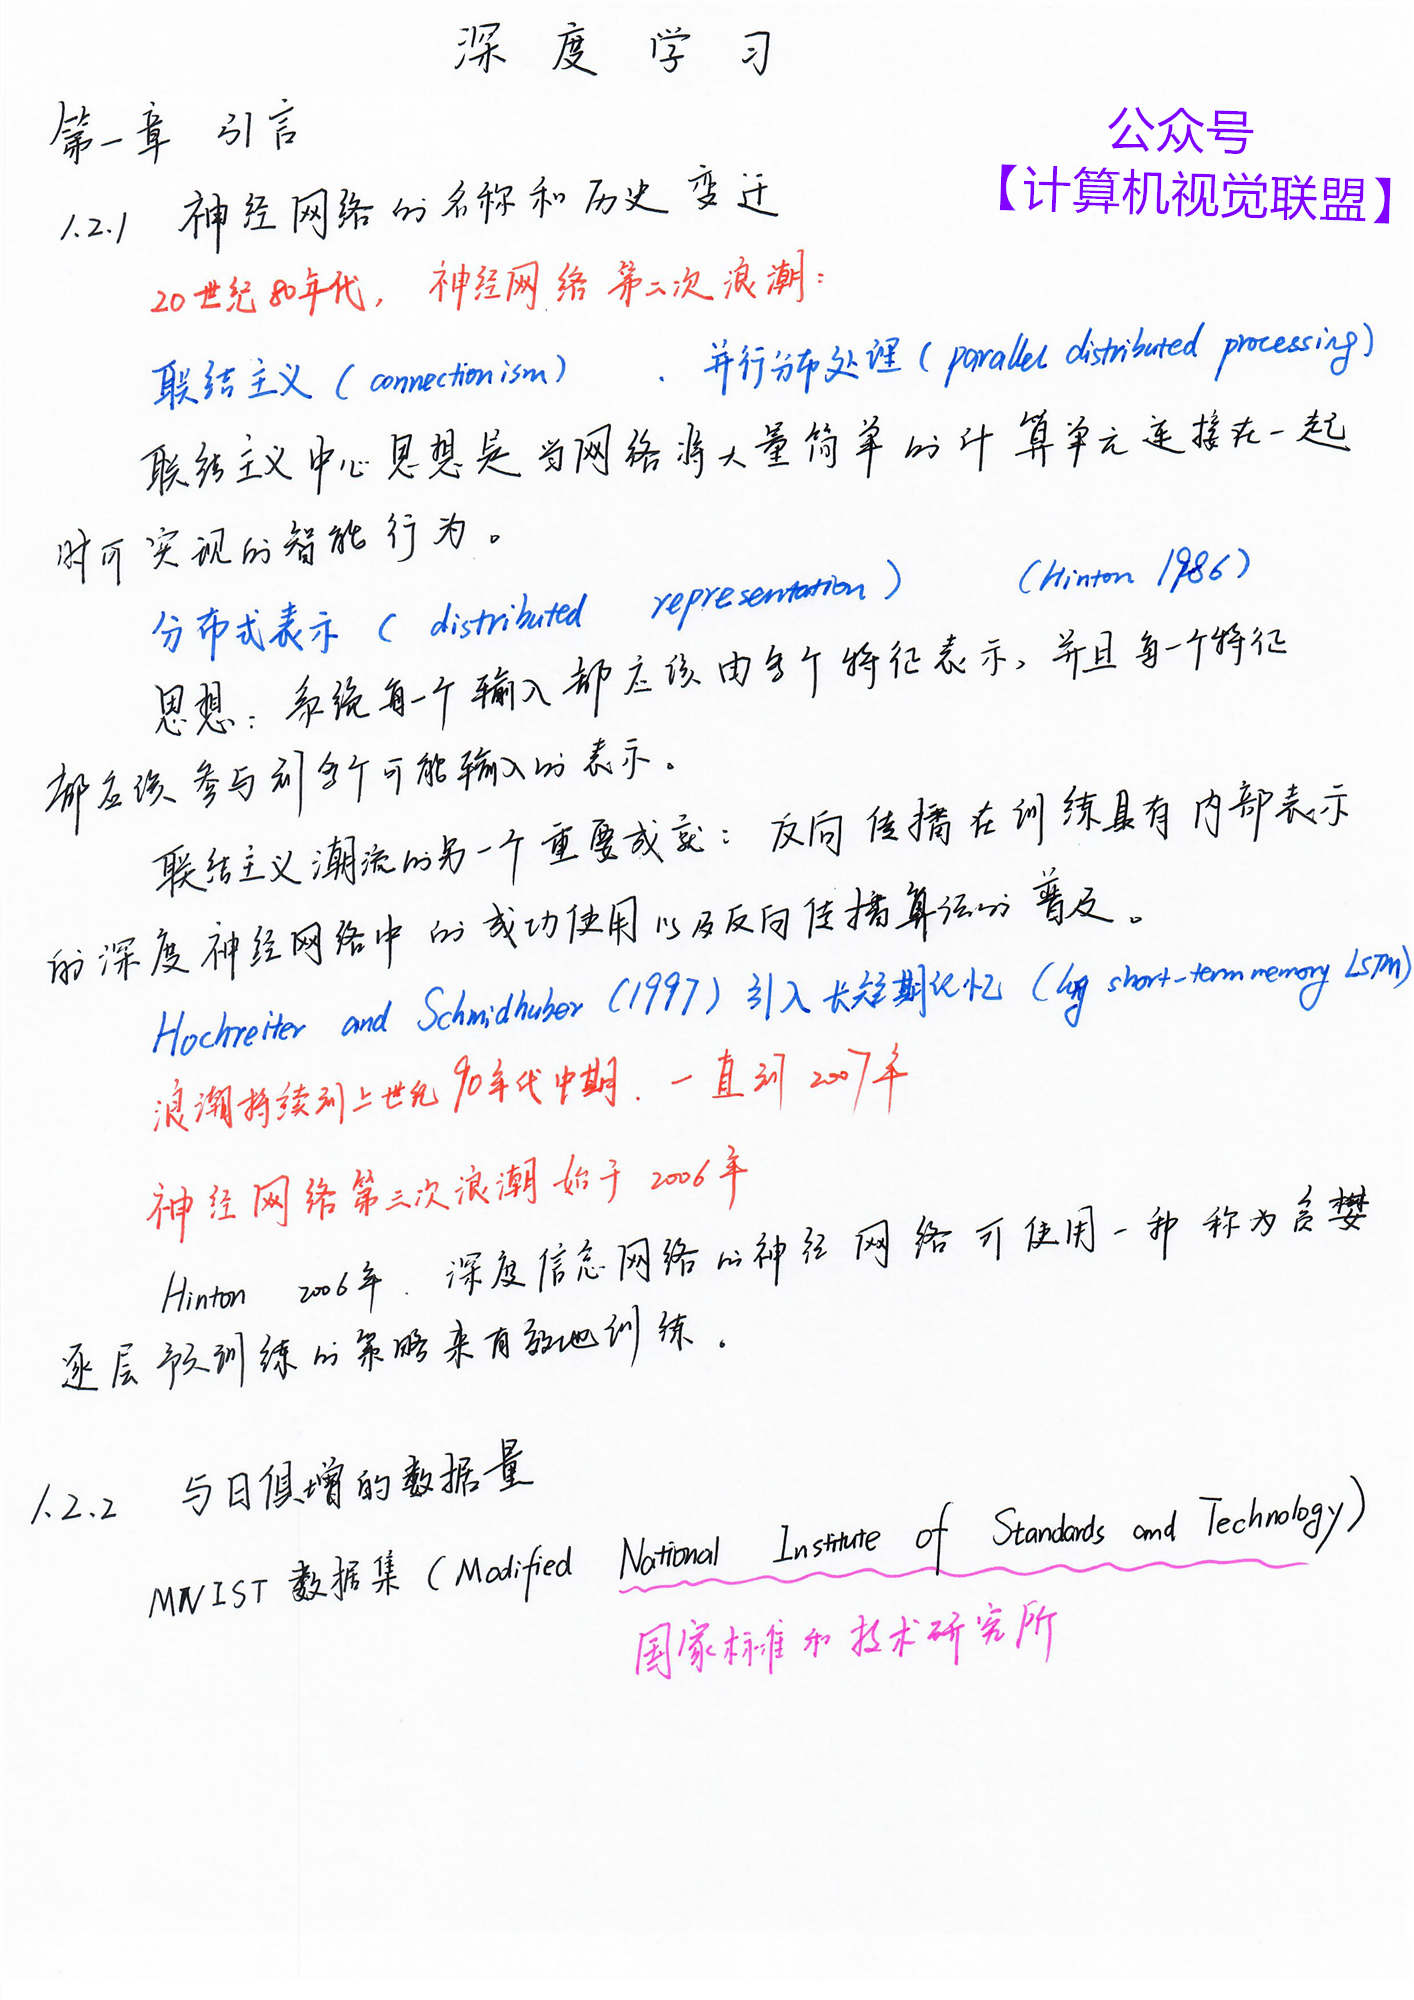 深度学习
第一章 引言
公众号
【计算机视觉联盟】
1.2.1 神经网络的名称和历史变迁
20世纪80年代, 神经网络第二次浪潮:
联结主义(connectionism) . 并行分布处理(parallel distributed processing)
联结主义中心思想是当网络将大量简单的计算单元连接在一起
时可实现的智能行为。
分布式表示(distributed representation) (Hinton 1986)
思想: 系统每一个输入都应该由多个特征表示, 并且每一个特征
都应该参与到多个可能输入的表示。
联结主义潮流的另一个重要成就: 反向传播在训练具有内部表示
的深度神经网络中的成功使用以及反向传播算法的普及。
Hochreiter and Schmidhuber (1997) 引入长短期记忆 (long short-term memory LSTM)
浪潮持续到上世纪90年代中期. 一直到2007年
神经网络第三次浪潮始于2006年
Hinton 2006年. 深度信念网络的神经网络可使用一种称为贪婪
逐层预训练的策略来有效地训练。
1.2.2 与日俱增的数据量
MNIST数据集(Modified National Institute of Standards and Technology)
国家标准和技术研究所